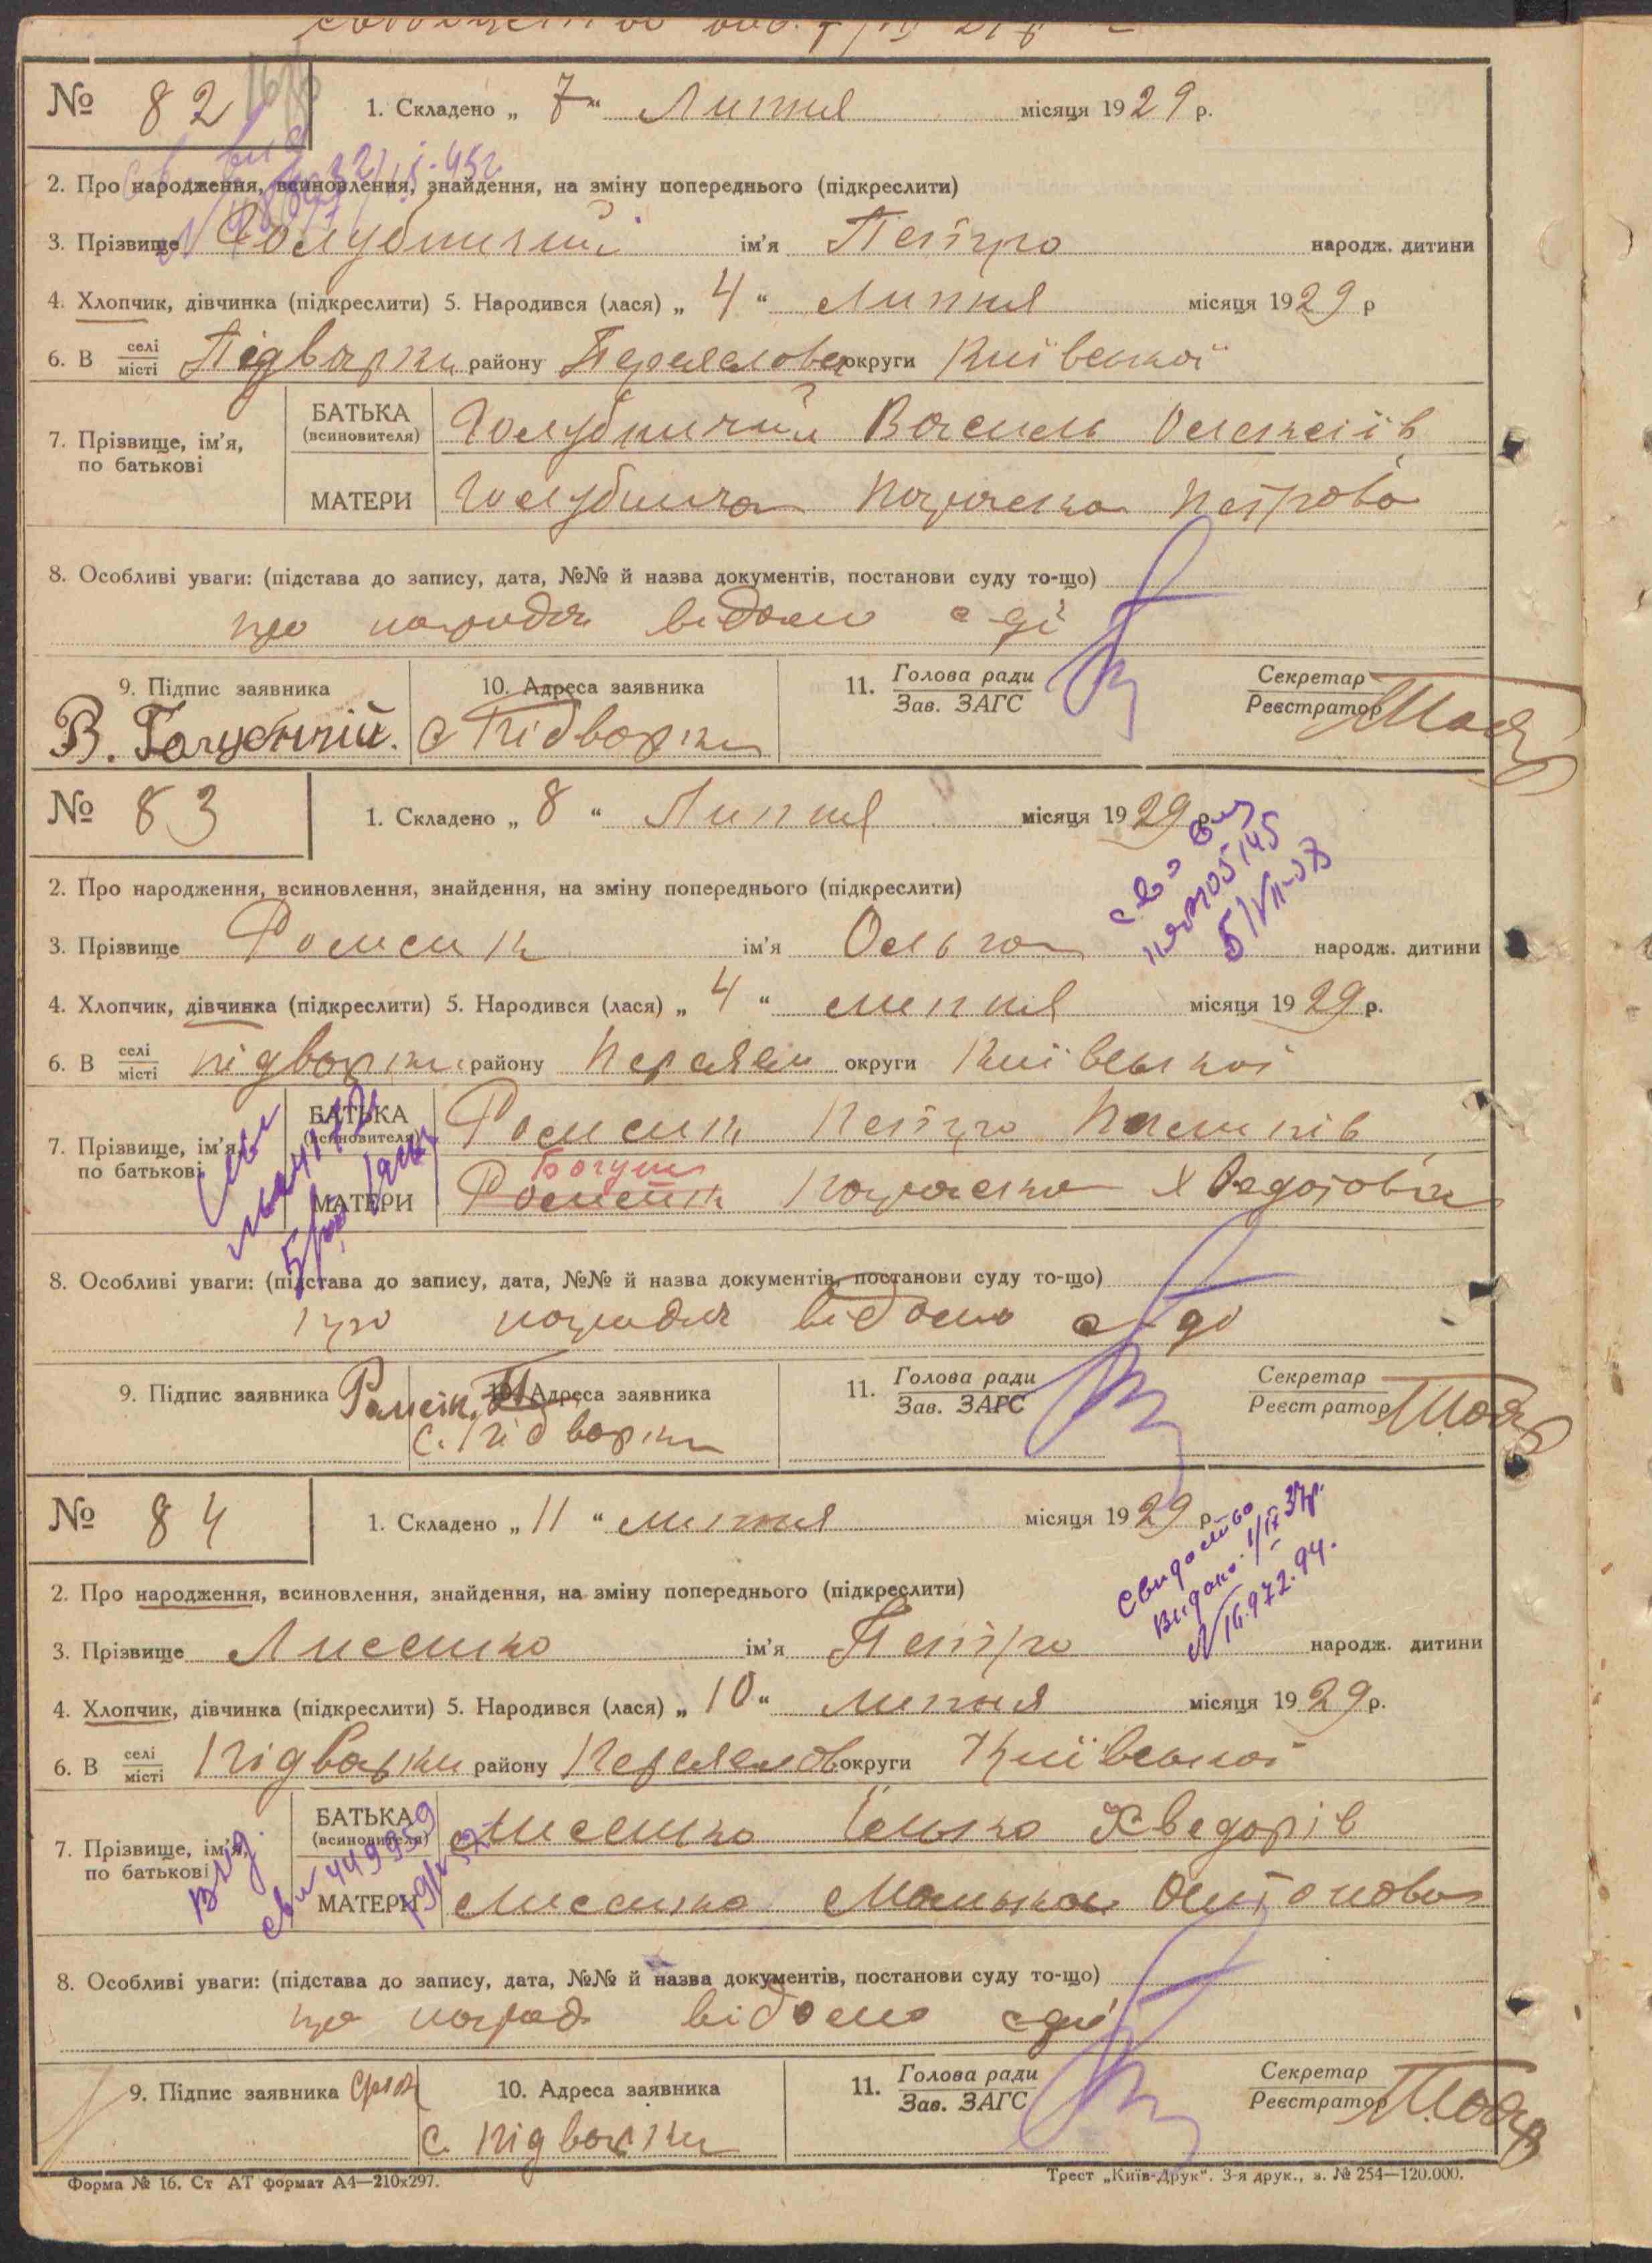 № 82
1. Складено „ 7 “ Липня місяця 1929 р.
2. Про народження, всиновлення, знайдення, на зміну попереднього (підкреслити)
3. Прізвище Голубничий ім'я Петро народж. дитини
4. Хлопчик, дівчинка (підкреслити) 5. Народився (лася) „ 4 “ Липня місяця 1929 р
6. В селі місті Підварки району Переясловсь округи Київської
7. Прізвище, ім'я, по батькові
БАТЬКА (всиновителя) Голубничий Василь Олексіїв
МАТЕРИ Голубнича Параска Петрова
8. Особливі уваги: (підстава до запису, дата, №№ й назва документів, постанови суду то-що)
про народж відомо с-ді
9. Підпис заявника
В. Голубничій.
10. Адреса заявника
с Підварки
11. Голова ради
Зав. ЗАГС
Секретар
Реєстратор
№ 83
1. Складено „ 8 “ Липня місяця 1929 р.
2. Про народження, всиновлення, знайдення, на зміну попереднього (підкреслити)
3. Прізвище Ромсик ім'я Ольга народж. дитини
4. Хлопчик, дівчинка (підкреслити) 5. Народився (лася) „ 4 “ липня місяця 1929 р.
6. В селі місті підварки району Переясл округи Київської
7. Прізвище, ім'я, по батькові
БАТЬКА (всиновителя) Петро
Богуш
МАТЕРИ Параска Хведотова
8. Особливі уваги: (підстава до запису, дата, №№ й назва документів, постанови суду то-що)
про народж відомо
9. Підпис заявника
10. Адреса заявника
с. Підварки
11. Голова ради
Зав. ЗАГС
Секретар
Реєстратор
№ 84
1. Складено „ 11 “ липня місяця 1929 р.
Свидоство
видано 1/IX 37р.
№ 16.972.94.
2. Про народження, всиновлення, знайдення, на зміну попереднього (підкреслити)
3. Прізвище Лисенко ім'я Петро народж. дитини
4. Хлопчик, дівчинка (підкреслити) 5. Народився (лася) „ 10 “ липня місяця 1929 р.
6. В селі місті Підварки району Переяслов округи Київської
7. Прізвище, ім'я, по батькові
БАТЬКА (всиновителя) Лисенко Ілько Хведорів
МАТЕРИ Лисенко Антонова
8. Особливі уваги: (підстава до запису, дата, №№ й назва документів, постанови суду то-що)
про народ відомо
9. Підпис заявника
10. Адреса заявника
с. підварки
11. Голова ради
Зав. ЗАГС
Секретар
Реєстратор
Форма № 16. Ст АТ формат А4—210х297.
Трест „Київ-Друк“. 3-я друк., з. № 254—120.000.